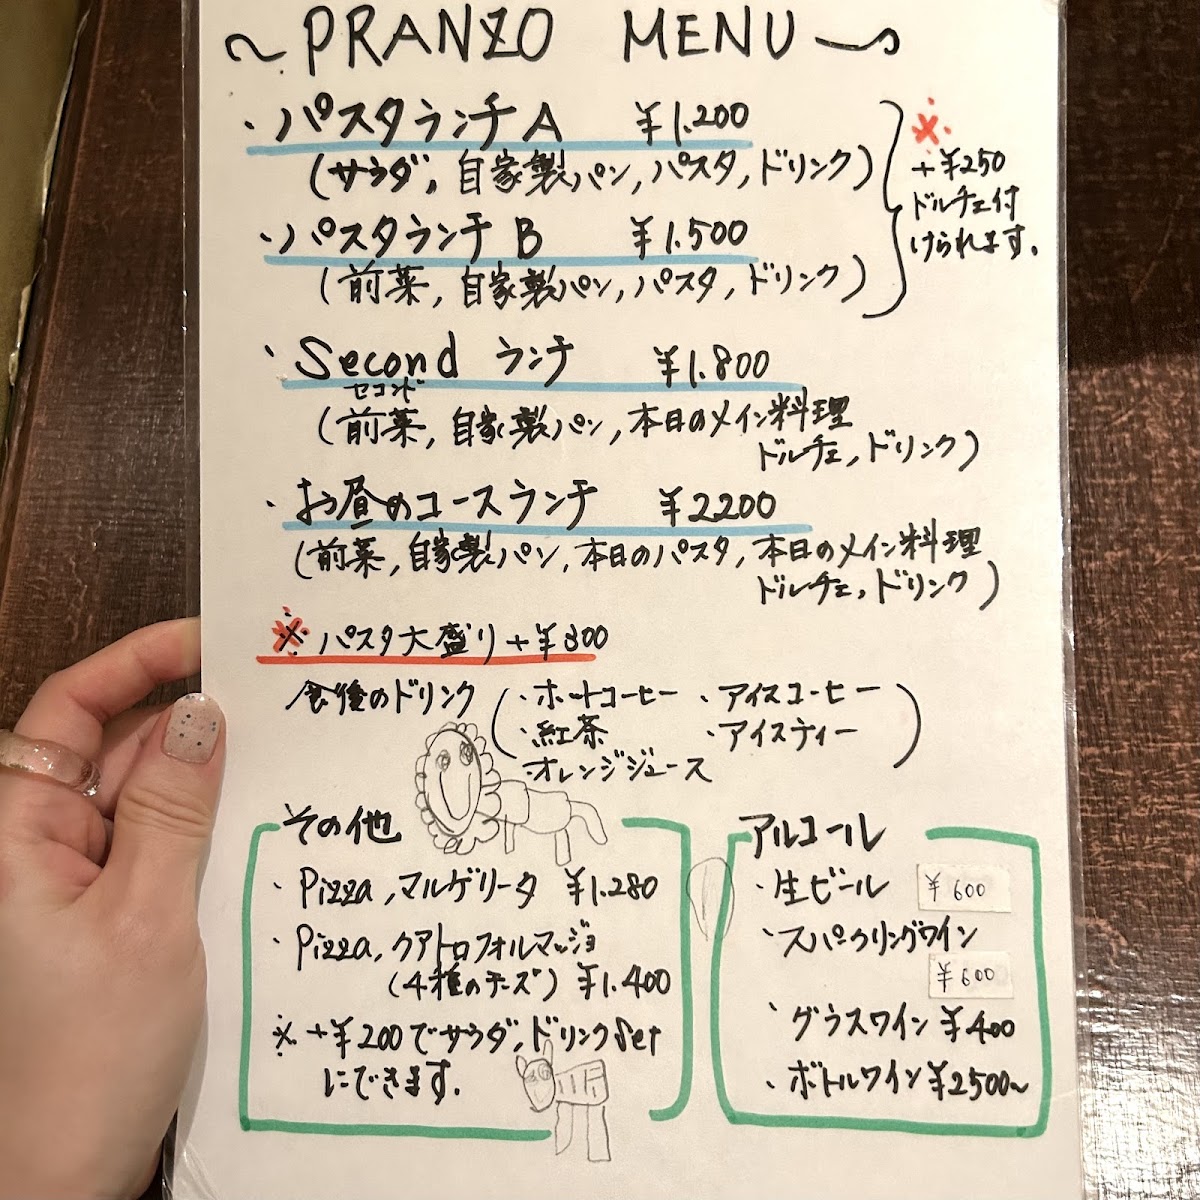 ~ PRANZO MENU ~
・パスタランチA ¥1.200
(サラダ, 自家製パン, パスタ, ドリンク)
・パスタランチB ¥1.500
(前菜, 自家製パン, パスタ, ドリンク)
※
+¥250
ドルチェ付
けられます。
・Second ランチ ¥1.800
セコンド
(前菜, 自家製パン, 本日のメイン料理
ドルチェ, ドリンク)
・お昼のコースランチ ¥2200
(前菜, 自家製パン, 本日のパスタ, 本日のメイン料理
ドルチェ, ドリンク)
※ パスタ大盛り +¥300
食後のドリンク (・ホットコーヒー ・アイスコーヒー
・紅茶 ・アイスティー)
・オレンジジュース
その他
・Pizza, マルゲリータ ¥1.280
・Pizza, クアトロフォルマッジョ
(4種のチーズ) ¥1.400
※ +¥200でサラダ, ドリンクSet
にできます。
アルコール
・生ビール ¥600
・スパークリングワイン
¥600
・グラスワイン ¥400
・ボトルワイン ¥2500~